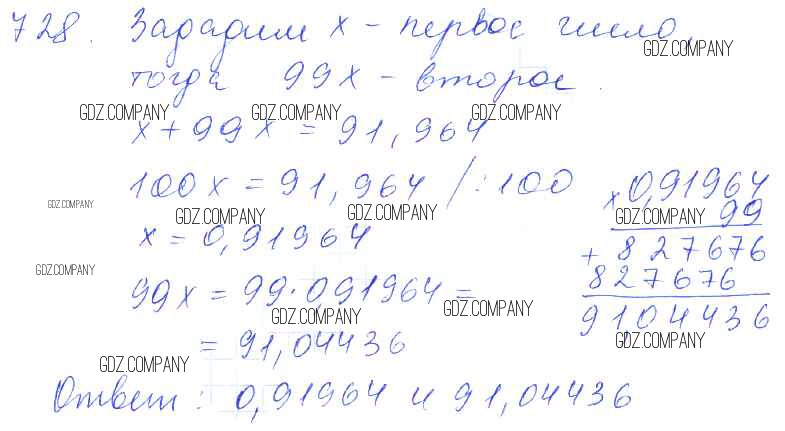 728. Зададим x – первое число,
тогда 99x – второе.
x + 99x = 91,964
100x = 91,964 /:100
x = 0,91964
99x = 99·0,91964 =
= 91,04436
Ответ: 0,91964 и 91,04436
× 0,91964
99
+ 827676
827676
91,04436
GDZ.COMPANY
GDZ.COMPANY
GDZ.COMPANY
GDZ.COMPANY
GDZ.COMPANY
GDZ.COMPANY
GDZ.COMPANY
GDZ.COMPANY
GDZ.COMPANY
GDZ.COMPANY
GDZ.COMPANY
GDZ.COMPANY
GDZ.COMPANY